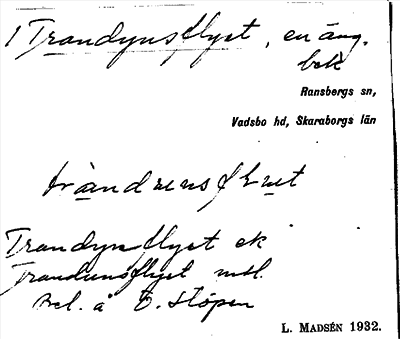 1 Trandynsflyet, en äng.
bek
Ransbergs sn,
Vadsbo hd, Skaraborgs län
Trandynsflyet ek
Trandunsflyet mtl.
Bel. å E. Höpen
L. MADSÉN 1932.